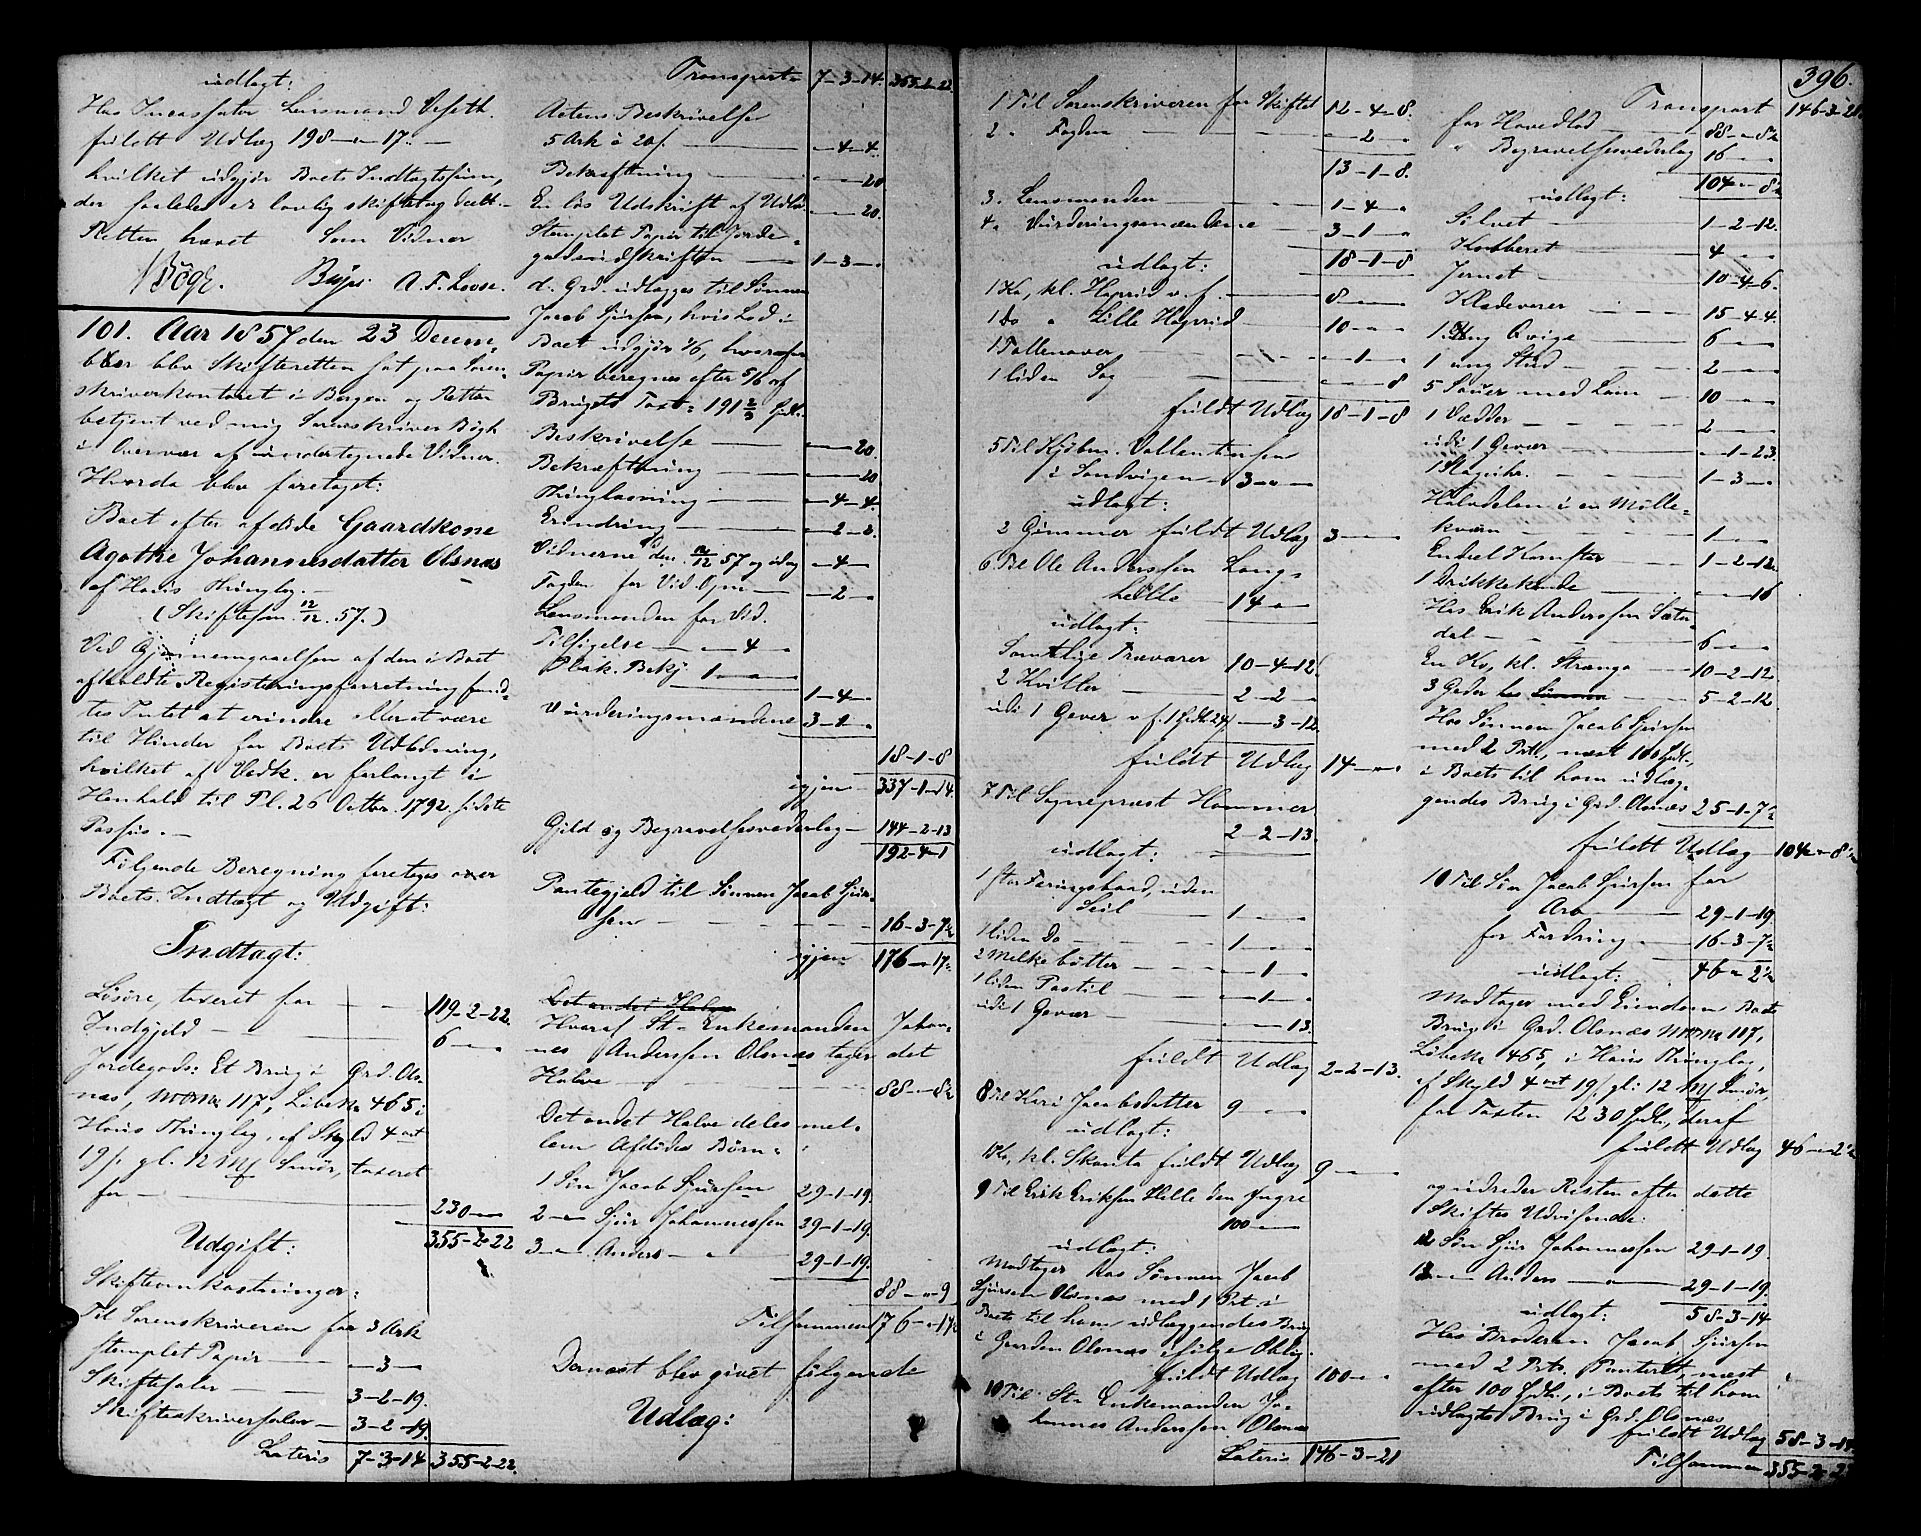 udlagt:
Hos Incassator Lensmand Veseth
fuldt Udlæg 198 - " - 17. -
hvilket udgjør Boets Indtægtssum,
der saaledes er lovlig skiftet og deelt. -
Retten hævet Som Vidner
Bøgh. A. F. Loose.
101. Aar 1857 den 23 Decem-
ber blev Skifteretten sat paa Soren-
skriverkontoret i Bergen og Retten
betjent ved mig Sorenskriver Bøgh
i Overvær af undertegnede Vidner.
Hvorda blev foretaget:
Boet efter afdøde Gaardkone
Agathe Johannesdatter Olsnæs
af Houis Thinglag. -
(Skiftesam. 12/12. 57.)
Ved Gjennemgaaelsen af den i Boet
afholdte Registreringsforretning fand-
tes Intet at erindre eller at være
til Hinder for Boets Udlodning,
hvilket af Vedk. er forlangt i
Henhold til Pl. 26 Octbr. 1792, sidste
Passus. -
Følgende Beregning foretoges over
Boets Indtægt og Udgift:
Indtægt:
Løsøre, taxeret for - 119-2-22.
Indgjeld - 6 - " - "
Jordegods: Et Brug i Grd. Ols-
næs, M No 117, Løbe No 465 i
Houis Thinglag, af Skyld 4 ort
19 s. gl. 12 M Smør, taxeret
for - 230 - " - "
355-2-22
Udgift:
Skifteomkostninger:
Til Sorenskriveren for 3 Ark
stemplet Papir - " - 3 - "
Skiftesaler - 3-2-19.
Skifteskriversaler - 3-2-19.
Lateris 7-3-14 355-2-22.
Transport 7-3-14. 355-2-22.
Actens Beskrivelse
5 Ark à 20 s. - " - 4 - 4.
Bekræftning - " - " - 20
En løs Udskrift af Udlæg - " - " - 20.
Stemplet Papir til Jorde-
godsudskriften - 1-3-"
d. Grd. udlægges til Sønnen
Jacob Sjursen, hvis Lod i
Boet udgjør 1/6, hvorefter
Papir beregnes efter 5/6 af
Brugets Taxt = 191 2/3 Spd.
Beskrivelse - " - " - 20.
Bekræftning - " - " - 20
Thinglæsning - " - 4 - 4.
Erindring - " - 2 - 2.
Vidnerne den 12/12 57 og idag - " - 4 - "
Fogden for Vid. Gjen - " - 2 - "
Lensmanden for Vid.
Tilsigelse - " - 4 - "
Plak. Bekj. 1 - " - "
1-4-"
Vurderingsmændene 3-1-"
18-1-8
igjen 337-1-14.
Gjeld og Begravelsesvederlag - 144-2-13
192-4-1
Pantegjeld til Sønnen Jacob Sjur-
sen - 16-3-7½
igjen 176-"-17½
Det andet Halve
Hvoraf St= Enkemanden Johan-
nes Anderssen Olsnæs tager det
Halve - 88-"-8½
Det andet Halve deles mel-
lem Afdødes Børn:
1 Søn Jacob Sjursen 29-1-19.
2 - " - Sjur Johannessen 29-1-19.
3 - " - Anders - " - 29-1-19.
88-"-9
Tilsammen 176-"-17½
Dernæst blev givet følgende
Udlæg:
396.
1 Til Sorenskriveren for Skiftet 12-4-8.
2 " Fogden - " - 2 - "
13-1-8.
3. Lensmanden - 1-4-"
4. Vurderingsmændene - 3-1-"
18-1-8
udlagt:
1 Ko, kl. Haprid v. f. 8-"-"
1 Do " Lille Haprid 10-"-"
1 Tollenaver - " - 1 - "
1 liden Sag - " - " - 8
fuldt Udlæg 18-1-8
5 Til Kjøbm. Vallentinsen
i Sandvigen - 3-"-"
udlagt:
2 Gimmer fuldt Udlæg 3-"-"
6 Til Ole Anderssen Lang-
helle - 14-"-"
udlagt:
Samtlige Trævarer 10-4-12.
2 Kvitler - 2-2-"
udi 1 Gevær v. f. 1 Spd. 24 s. " - 3-12.
fuldt Udlæg 14-"-"
7 Til Sognepræst Hammer
2-2-13.
udlagt:
1 stor Færingsbaad, uden
Seil - 1-"-"
1 liden Do - 1-"-"
2 Melkebøtter - "-1-"
1 liden Pastil - "-1-"
udi 1 Gevær - "-"-13.
fuldt Udlæg 2-2-13.
8 Til Kari Jacobsdatter 9-"-"
udlagt:
1 Ko, kl. Skanta fuldt Udlæg 9-"-"
9 Til Erik Eriksen Helle den Yngre
100-"-"
udlagt:
Modtager hos Sønnen Jacob
Sjursen Olsnæs med 1 Prt. i
Boets til ham udlæggendes Brug
i Gaarden Olsnæs ifølge Oblig.
fuldt Udlæg 100-"-"
10 Til St= Enkemanden Jo-
hannes Anderssen Olsnæs
Lateris 146-3-21
Transport 146-3-21.
for Hovedlod - 88-"-8½
" Begravelsesvederlag 16-"-"
104-"-8½
udlagt:
Sølvet - 1-2-12.
Kobberet - 4-"-"
Jernet - 10-4-6.
Klædevarer - 15-4-4.
1 ung Qvige - 6-"-"
1 ung Stud - 2-"-"
5 Sauer med Lam - 10-"-"
1 Vædder - 2-"-"
udi 1 Gevær - "-1-23.
1 Slaguhr - 1-3-"
Halvdelen i en Mølle-
kværn - 1-"-"
Endeel Homster - 1-2-12.
1 Drikkekande - "-"-16
Hos Erik Anderssen Sæter-
dal - 6-"-"
En Ko, kl. Strange - 10-2-12.
3 Geder hos Sønnen - 5-2-12
Hos Sønnen Jacob Sjursen
med 2 Prt., næst 100 Spd.,
i Boets til ham udlæg-
gendes Brug i Grd. Olsnæs 25-1-7½
fuldt Udlæg 104-"-8½
10 Til Søn Jacob Sjursen for
Arv - 29-1-19.
for Fordring - 16-3-7½
udlagt: 46-"-2½
Modtager med Eiendom Boets
Brug i Grd. Olsnæs M No 117,
Løbe No 465, i Houis Thinglag,
af Skyld 4 ort 19 s. gl: 12 M Smør,
for Taxten 1230 Spd., deraf
fuldt Udlæg 46-"-2½
og udreder Resten efter dette
Skiftes Udvisende.
12 Søn Sjur Johannessen 29-1-19.
13 - " - Anders - " - 29-1-19.
udlagt: 58-3-14
Hos Broderen Jacob Sjursen
med 2 Prt. Panteret, næst
efter 100 Spd., i Boets til ham
udlagte Brug i Grd. Olsnæs
fuldt Udlæg 58-3-14.
Tilsammen 355-2-22